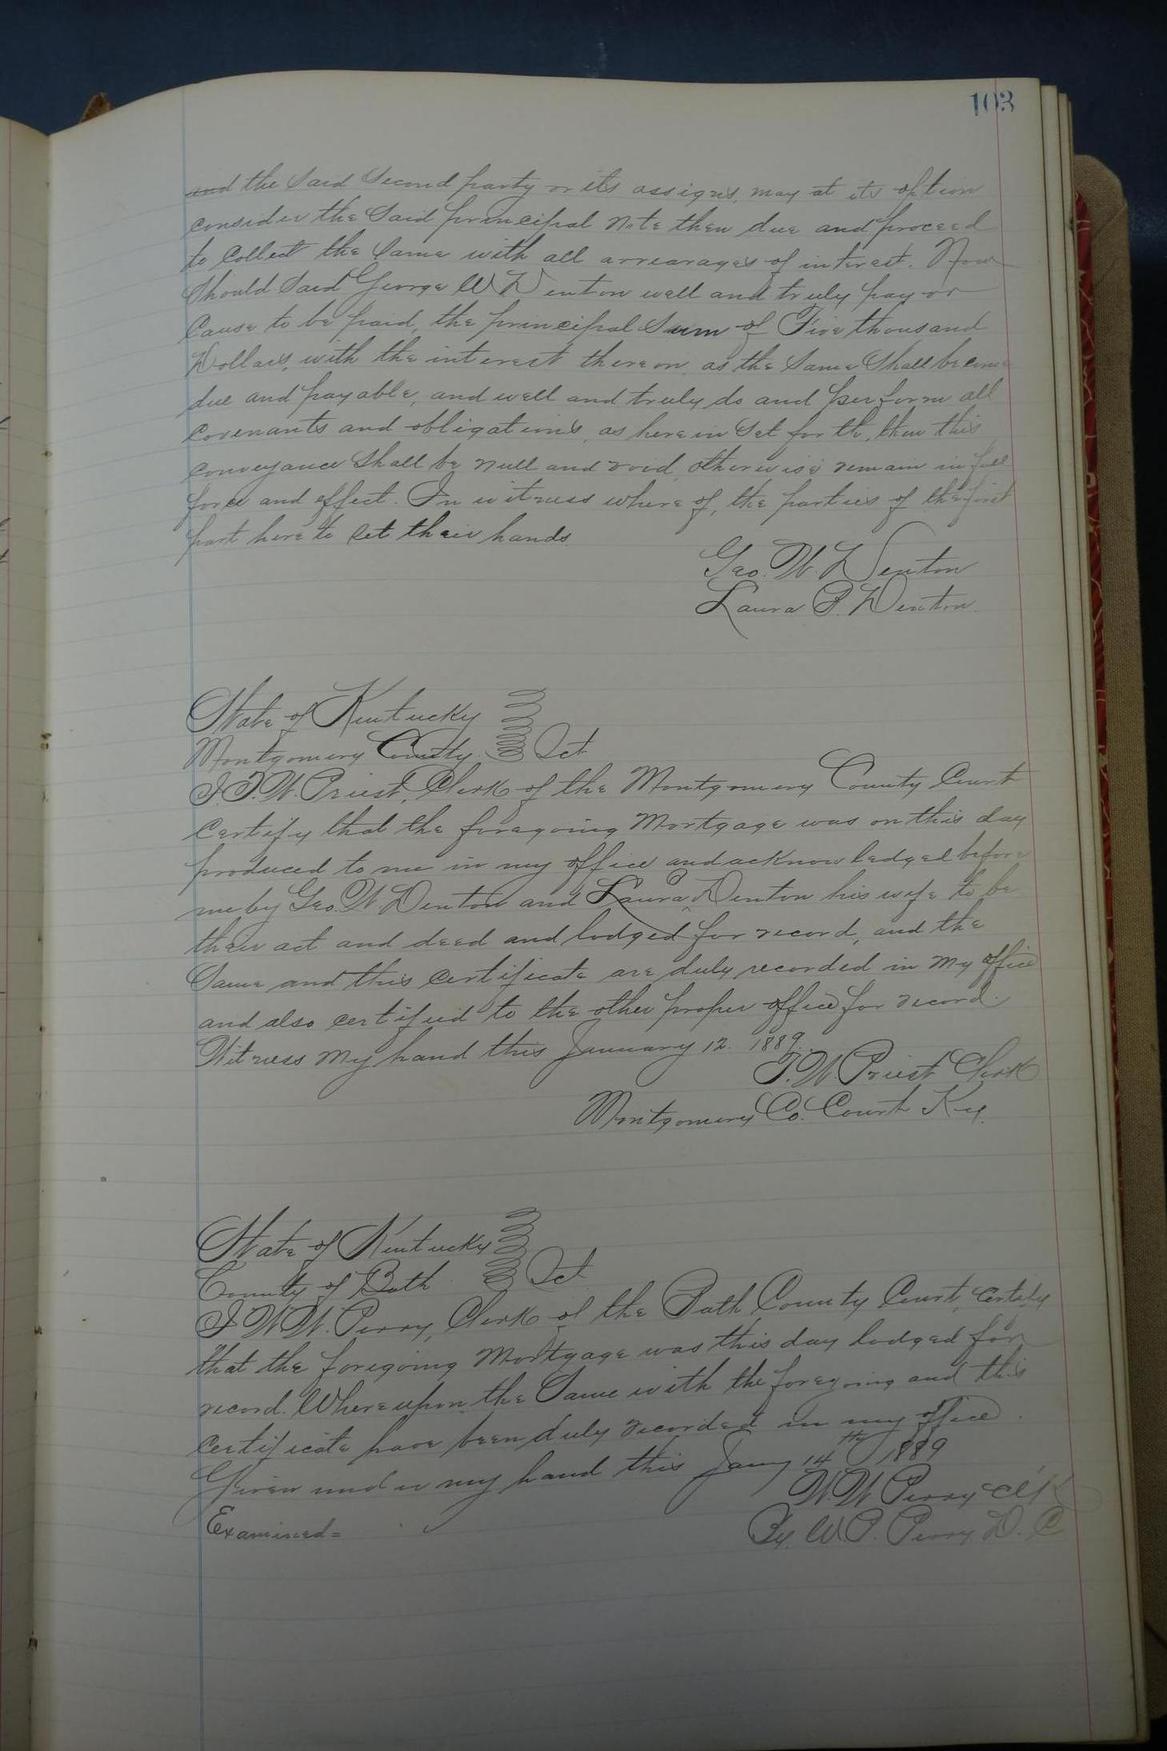 103
and the Said Second party or its assigns, may at its option
consider the Said principal Note then due and proceed
to Collect the Same with all arrearages of interest. Now
Should Said George W Denton well and truly pay or
Cause to be paid, the principal Sum of Five thousand
Dollars, with the interest thereon, as the Same Shall become
due and payable, and well and truly do and perform all
Covenants and obligations, as herein Set forth, then this
Conveyance Shall be Null and void, otherwise remain in full
force and effect. In witness where of, the parties of the first
part here to Set their hands.
Geo. W. Denton
Laura P. Denton.
State of Kentucky
Montgomery County Sct.
I. T. W. Priest, Clerk of the Montgomery County Court
Certify that the foregoing Mortgage was on this day
produced to me in my office and acknowledged before
me by Geo. W Denton and Laura P Denton his wife to be
their act and deed and lodged for record, and the
Same and this Certificate are duly recorded in My office
and also Certified to the other proper office for record.
Witness My hand this January 12. 1889.
T. W Priest Clerk
Montgomery Co. Court Ky.
State of Kentucky
County of Bath Sct
I W. W. Perry, Clerk of the Bath County Court, Certify
that the foregoing Mortgage was this day lodged for
record. Whereupon the Same with the foregoing and this
Certificate have been duly recorded in my office
Given under my hand this Jany 14th 1889
W. W Perry Clk
Examined=
By. W. P. Perry D. C